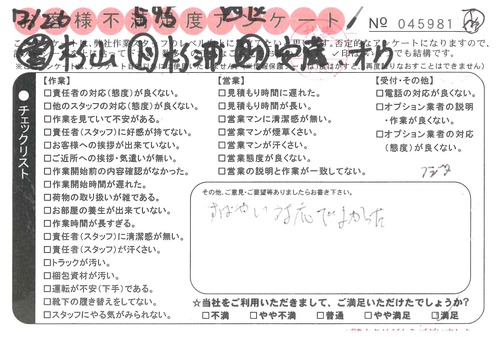 お客様不満足度アンケート
No 045981
【作業】
□責任者の対応(態度)が良くない。
□他のスタッフの対応(態度)が良くない。
□作業を見ていて不安がある。
□責任者(スタッフ)に好感が持てない。
□お客様への挨拶が出来ていない。
□ご近所への挨拶・気遣いが無い。
□作業開始前の内容確認がなかった。
□作業開始時間が遅れた。
□荷物の取り扱いが雑である。
□お部屋の養生が出来ていない。
□作業時間が長すぎる。
□責任者(スタッフ)に清潔感が無い。
□責任者(スタッフ)が汗くさい。
□トラックが汚い。
□梱包資材が汚い。
□運転が不安(下手)である。
□靴下の履き替えをしてない。
□スタッフにやる気がみられない。
【営業】
□見積もり時間に遅れた。
□見積もり時間が長い。
□営業マンに清潔感が無い。
□営業マンが煙草くさい。
□営業マンが汗くさい。
□営業態度が良くない。
□営業の説明と作業が一致してない。
【受付・その他】
□電話の対応が良くない。
□オプション業者の説明
・作業が良くない。
□オプション業者の対応
(態度)が良くない。
チェックリスト
その他、ご意見・ご要望等ありましたらお書き下さい。
すばやい対応でよかった
☆当社をご利用いただきまして、ご満足いただけたでしょうか?
□不満 □やや不満 □普通 □やや満足 □満足